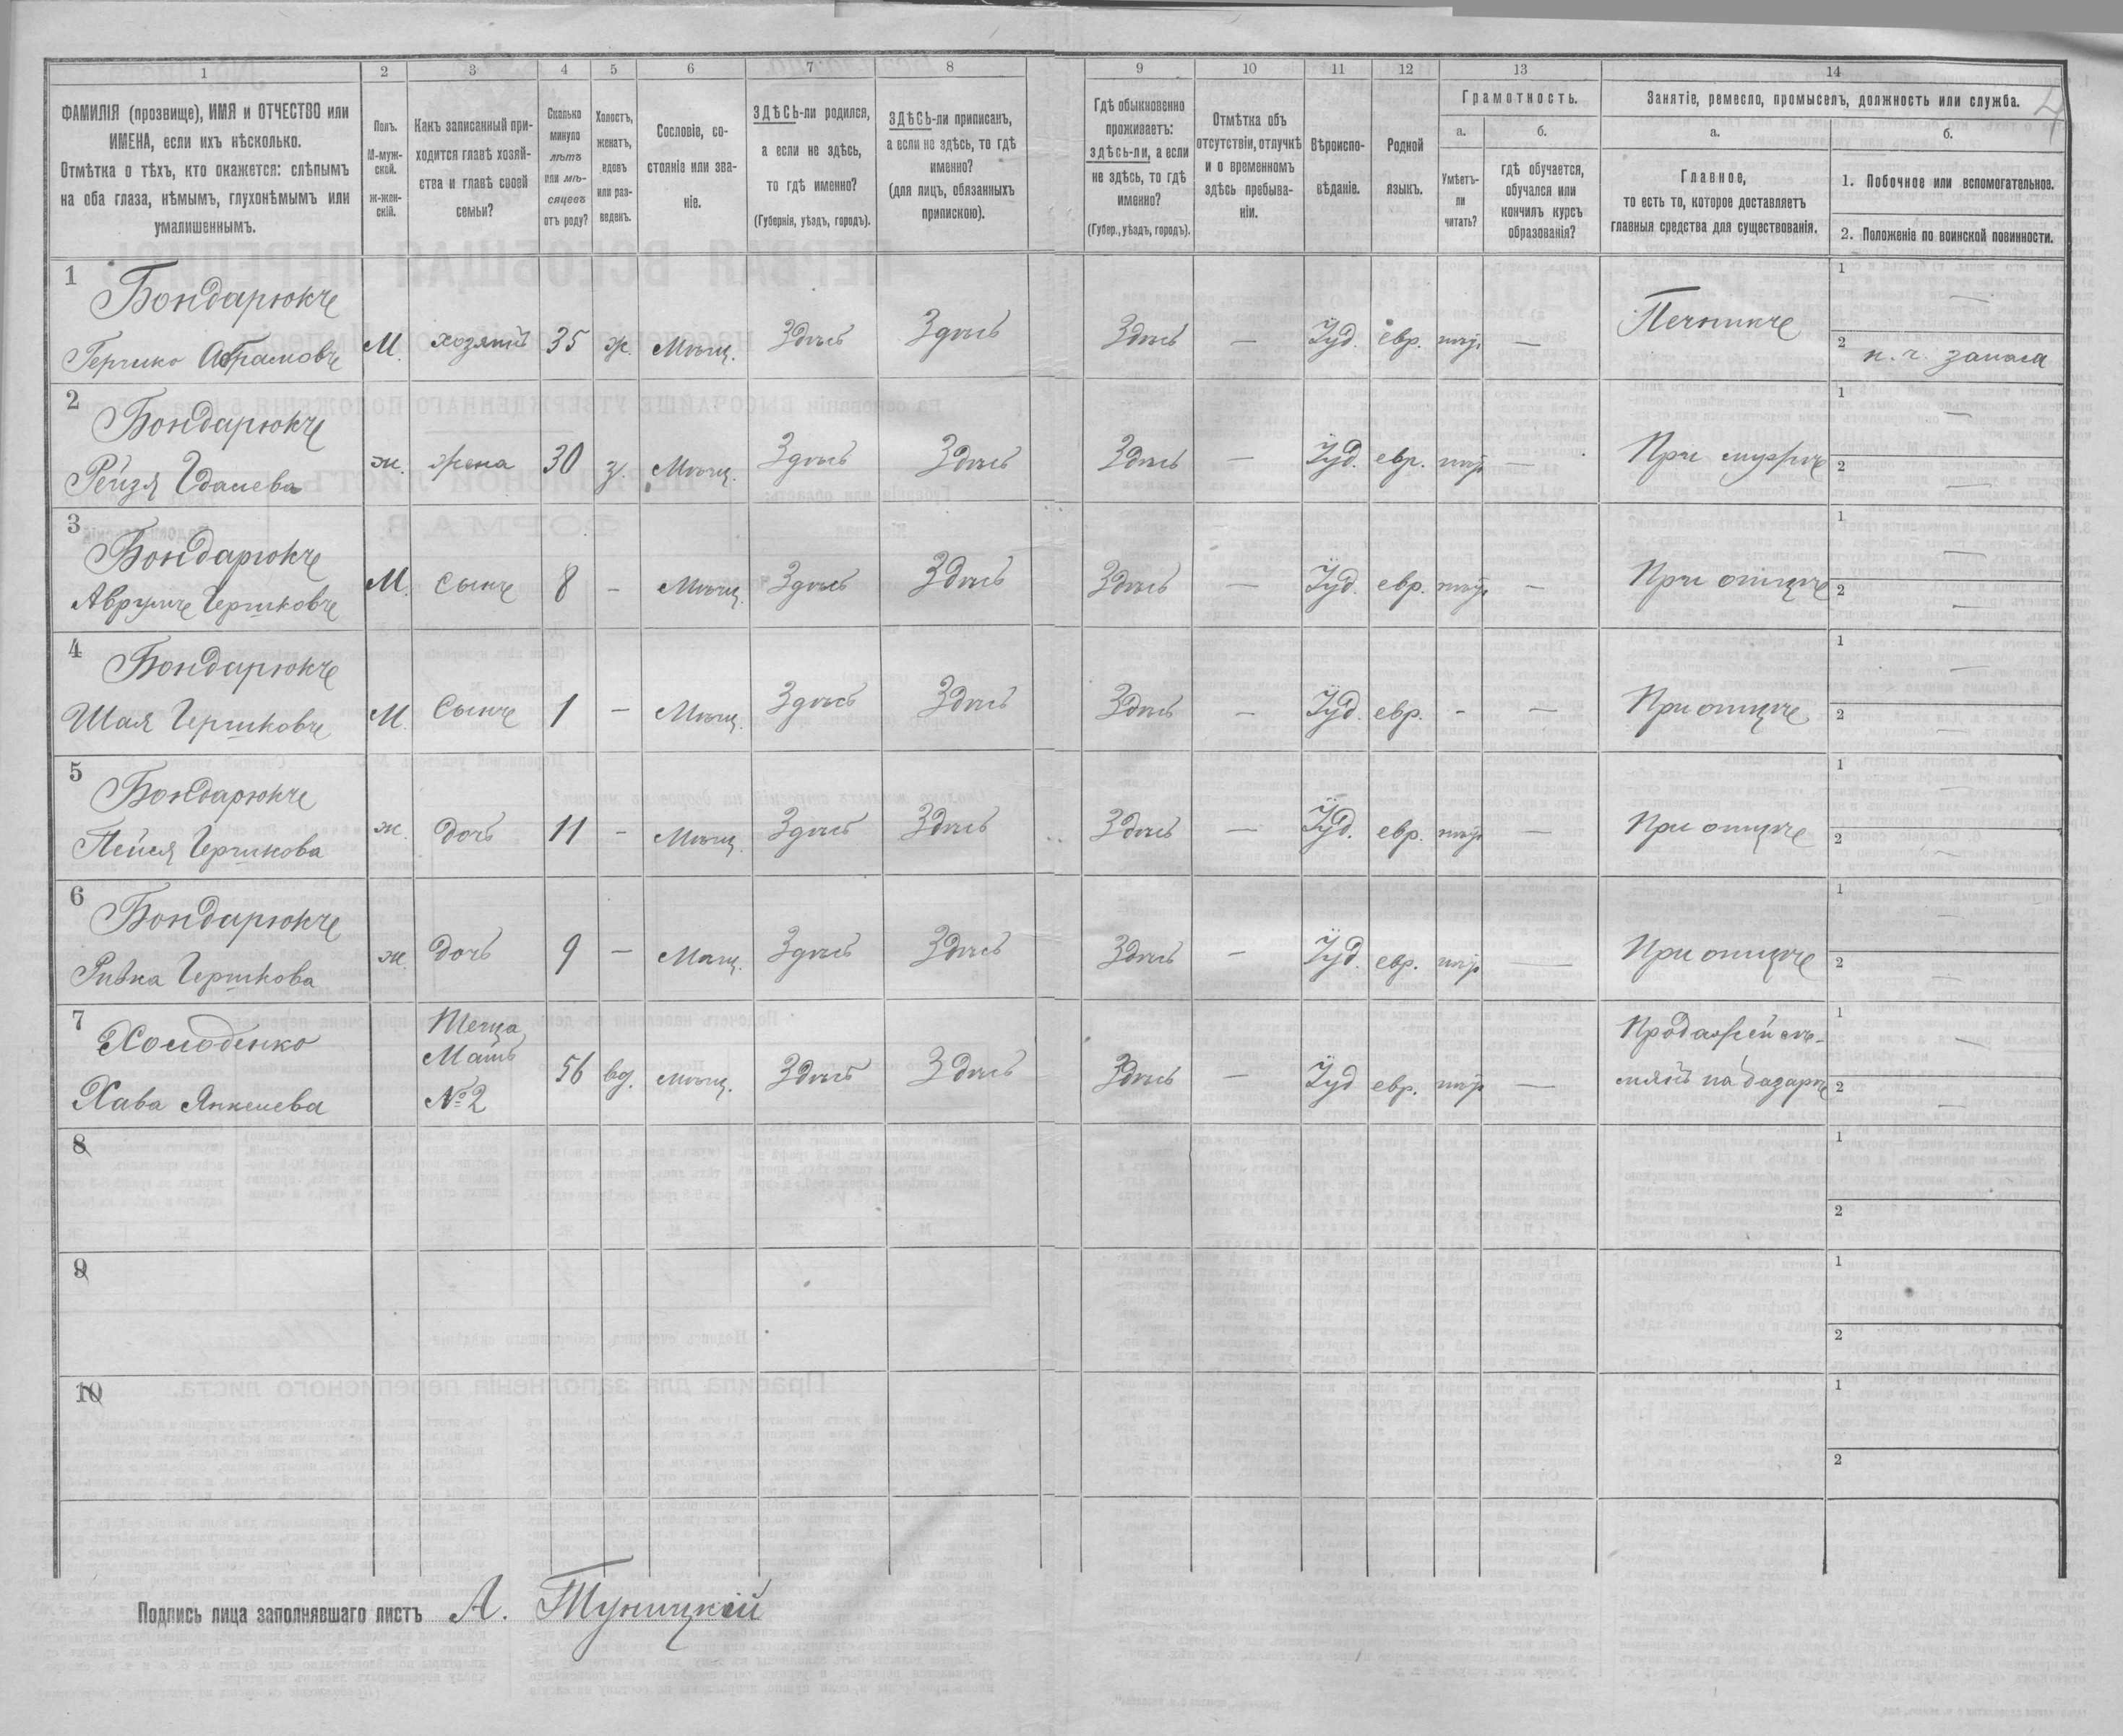 1 2 3 4 5 6 7 8 9 10 11 12 13 14
ФАМИЛІЯ (прозвище), ИМЯ и ОТЧЕСТВО или
ИМЕНА, если ихъ нѣсколько.
Отмѣтка о тѣхъ, кто окажется: слѣпымъ
на оба глаза, нѣмымъ, глухонѣмымъ или
умалишеннымъ.
Полъ.
М-муж-
ской.
ж-жен-
скій.
Какъ записанный при-
ходится главѣ хозяй-
ства и главѣ своей
семьи?
Сколько
минуло
лѣтъ
или мѣ-
сяцевъ
отъ роду?
Холостъ,
женатъ,
вдовъ
или раз-
веденъ.
Сословіе, со-
стояніе или зва-
ніе.
ЗДѢСЬ-ли родился,
а если не здѣсь,
то гдѣ именно?
(Губернія, уѣздъ, городъ).
ЗДѢСЬ-ли приписанъ,
а если не здѣсь, то гдѣ
именно?
(для лицъ, обязанныхъ
припискою).
Гдѣ обыкновенно
проживаетъ:
здѣсь-ли, а если
не здѣсь, то гдѣ
именно?
(Губер., уѣздъ, городъ).
Отмѣтка объ
отсутствіи, отлучкѣ
и о временномъ
здѣсь пребыва-
ніи.
Вѣроиспо-
вѣданіе.
Родной
языкъ.
Грамотность.
а.
Умѣетъ-
ли
читать?
б.
гдѣ обучается,
обучался или
кончилъ курсъ
образованія?
Занятіе, ремесло, промыселъ, должность или служба.
4
а.
Главное,
то есть то, которое доставляетъ
главныя средства для существованія.
б.
1. Побочное или вспомогательное.
2. Положеніе по воинской повинности.
1
Бондарюкъ
Гершко Абрамовъ
М. хозяинъ 35 ж. Мѣщ. Здѣсь Здѣсь Здѣсь — Іуд. евр. нѣтъ — Печникъ
1 —
2 н. ч. запаса
2
Бондарюкъ
Рейзя Гдалева
ж. жена 30 з. Мѣщ. Здѣсь Здѣсь Здѣсь — Іуд. евр. нѣтъ — При мужѣ
1 —
2 —
3
Бондарюкъ
Аврумъ Гершковъ
М. Сынъ 8 – Мѣщ. Здѣсь Здѣсь Здѣсь — Іуд. евр. нѣтъ – При отцѣ
1 —
2 —
4
Бондарюкъ
Шая Гершковъ
М. Сынъ 1 – Мѣщ. Здѣсь Здѣсь Здѣсь — Іуд. евр. - — При отцѣ
1 —
2 —
5
Бондарюкъ
Гершкова
ж. дочь 11 – Мѣщ. Здѣсь Здѣсь Здѣсь — Іуд. евр. нѣтъ — При отцѣ
1 —
2 —
6
Бондарюкъ
Ривка Гершкова
ж. дочь 9 – Мѣщ. Здѣсь Здѣсь Здѣсь – Іуд. евр. нѣтъ — При отцѣ
1 —
2 —
7
Холоденко
Хава Янкелева
Теща
Мать
№ 2
56 вд. мѣщ. Здѣсь Здѣсь Здѣсь — Іуд евр. нѣтъ —
на базарѣ
1 —
2 —
8
1
2
9
1
2
10
1
2
Подпись лица заполнявшаго листъ А. Туницкій